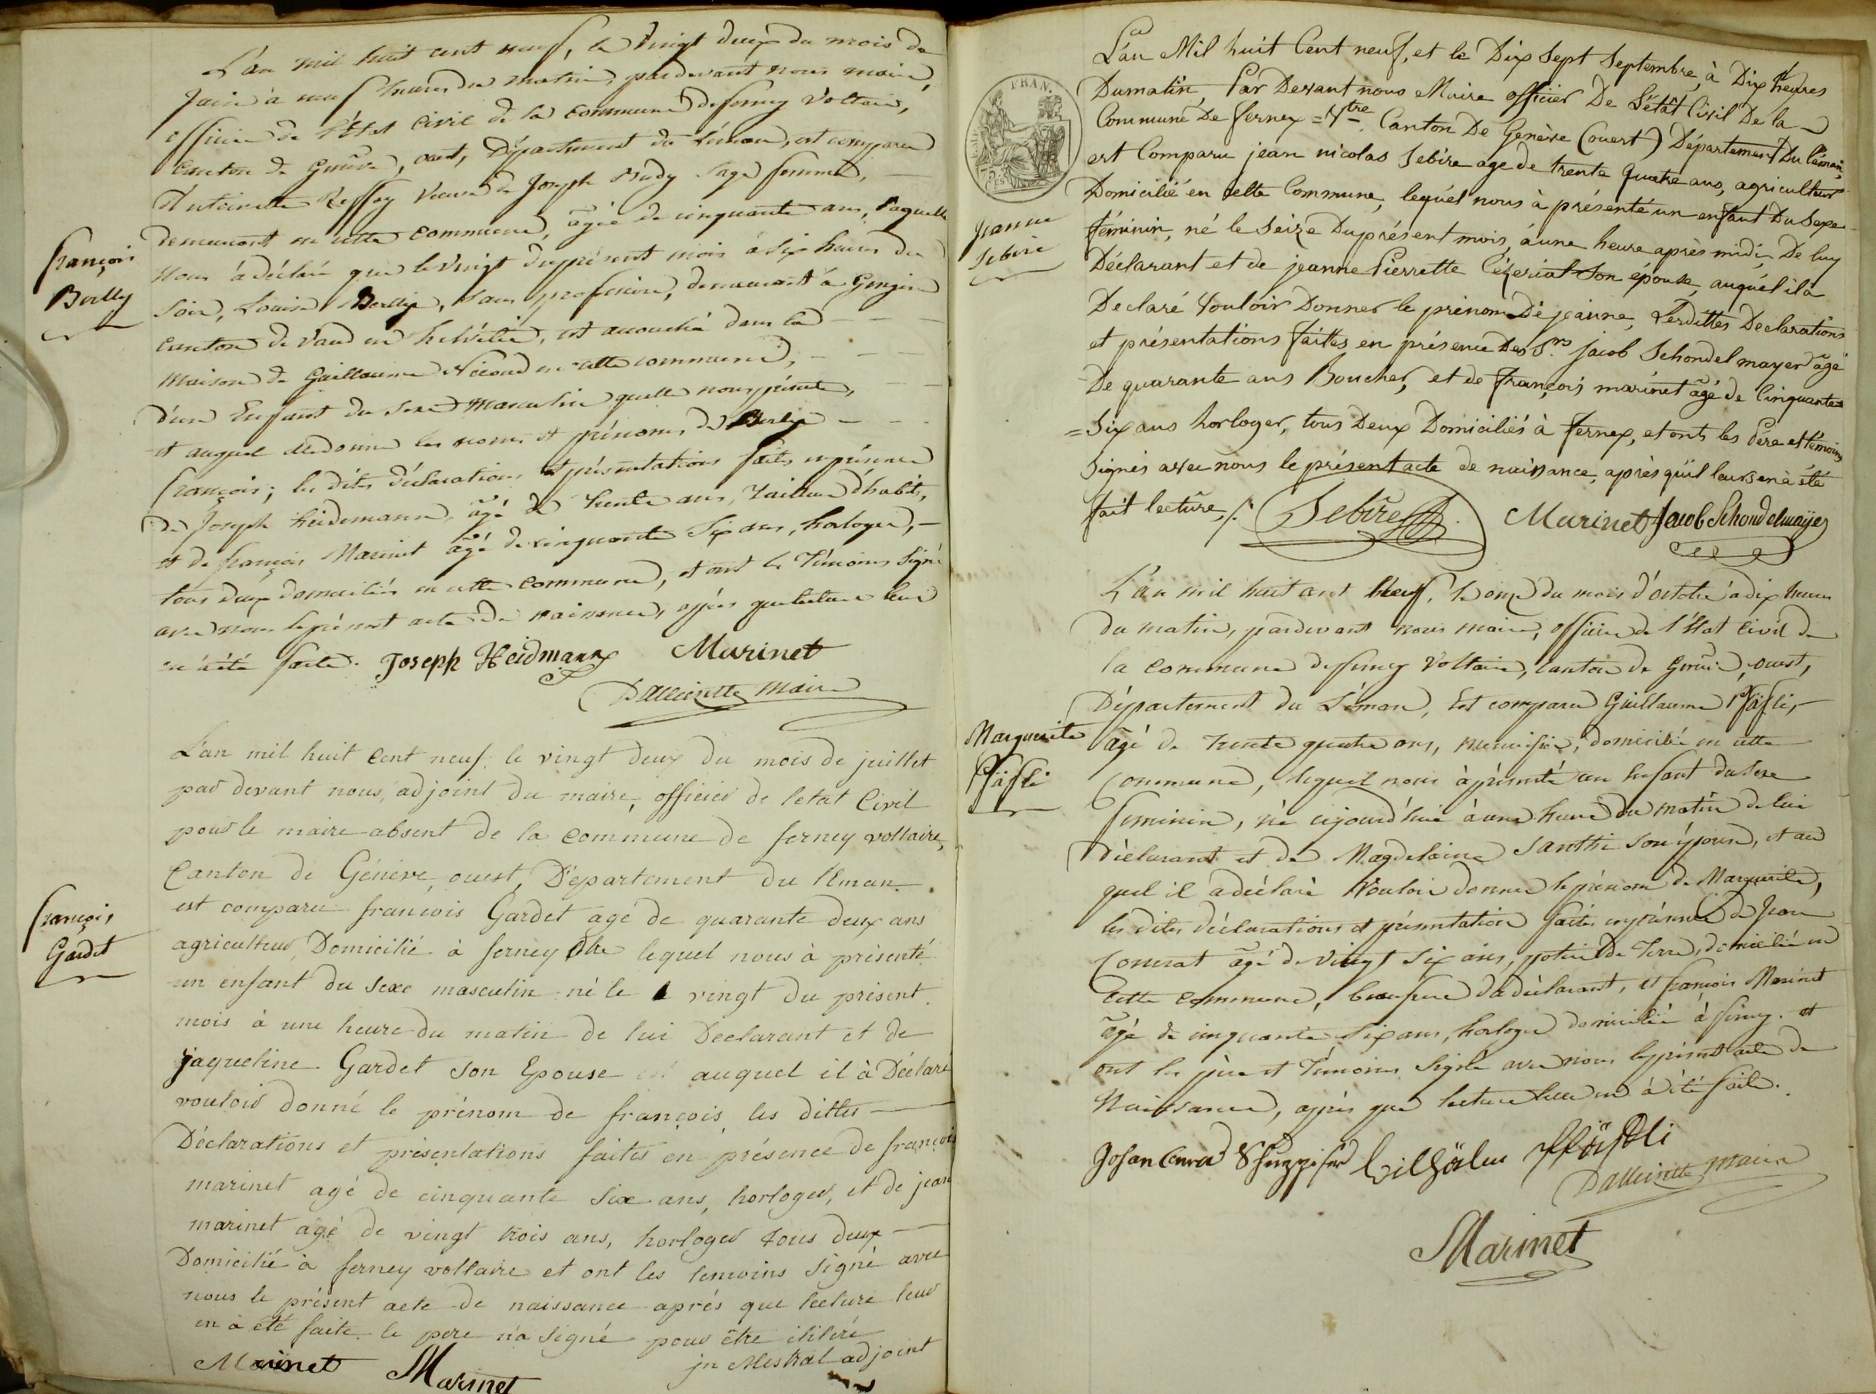 L'an mil huit cent neuf, le vingt deux du mois de
juin à neuf heures du matin, pardevant nous maire,
officier de l'état civil de la commune de ferney Voltaire,
canton de Genève, ouest, Département du Léman, est comparu
Antoinette veuve de Joseph sage femme,
demeurant en cette commune, âgée de cinquante ans, laquelle
nous à déclaré que le vingt du présent mois à six heures du
soir, Louise Berlly, sans profession, demeurant à Gingin
canton de Vaud en helvétie, est accouchée dans la
maison de Guillaume Nicoud en cette commune,
d'un Enfant du sexe masculin quelle nous présente,
et auquel elle donne les noms et prénoms de
françois; les dites déclarations et présentations faites en présence
de Joseph heidemann, âgé de trente ans, tailleur d'habits,
et de françois Marinet âgé de cinquante six ans, horloger,
tous deux domiciliés en cette commune, et ont les Témoins signé
avec nous le présent acte de naissance, après que lecture leur
en a été faite. Joseph Heidmann Marinet
Maire
françois
Berlly
L'an mil huit cent neuf. le vingt deux du mois de juillet
par devant nous, adjoint du maire, officier de letat Civil
pour le maire absent de la commune de ferney voltaire,
Canton de Génève, ouest, Département du léman.
est comparu francois Gardet agé de quarante deux ans
agriculteur Domicilié à ferney Vtre lequel nous à présenté
un enfant du sexe masculin né le vingt du présent
mois à une heure du matin de lui Declarant et de
jaqueline Gardet son Epouse auquel il à Déclaré
vouloir donné le prénom de françois, les dittes
Déclarations et présentations faites en présence de françois
marinet agé de cinquante six ans, horloger, et de jean
marinet agé de vingt trois ans, horloger tous deux
Domicilié à ferney voltaire et ont les temoins signé avec
nous le présent acte de naissance aprés que lecture leur
en à été faite. le pere n'a signé pour être illiteré
Marinet Marinet jn Mestral adjoint
françois
Gardet
L'an Mil huit Cent neuf, et le Dix Sept Septembre, à Dix heures
Dumatin, Par Devant nous Maire officier De L'état Civil De la
Commune De ferney = Vtre. Canton De Genève (ouest) Département Du Léman,
est Comparu jean nicolas Sebire age de trente quatre ans, agriculteur
Domicilié en Cette Commune, lequel nous à présenté un enfant Du Sexe
féminin, né le Seize Duprésent mois, à une heure après midi, De luy
Déclarant et de jeanne Pierrette Cézeriat Son epouse, auquél il à
Declaré Vouloir Donner le prénom De jeanne, Lesdittes Declarations
et présentations faittes en présence Des Srs. jacob Schondelmayer âgé
De quarante ans Boucher, et de françois marinet âgé de Cinquante
= Six ans horloger, tous Deux Domiciliés à ferney, et ont les Père et témoins
Signés avec nous le présent acte de naissance, après qu'il leurs en à été
fait lecture ./. Sebire Marinet Jacob Schondelmayer
FRAN.
jeanne
Sebire
L'an mil huit cent Neuf, le onze du mois d'octobre à dix heures
du matin, pardevant nous maire, officier de l'État Civil de
la commune de ferney Voltaire, canton de Genève, ouest,
Département du Léman, Est comparu Guillaume Pfäfli,
âgé de trente quatre ans, domicilié en cette
Commune, lequel nous à présenté un Enfant du sexe
féminin, né aujourd'hui à une heure du matin de lui
déclarant et de Magdelaine Santhi son épouse, et au
quel il a déclaré Vouloir donner le prénom de Marguerite,
les dites déclarations et présentation faites en présence de Jean
Conrat âgé de vingt six ans, potier de Terre, domicilié en
cette commune, beaufrere du déclarant, et françois Marinet
âgé de cinquante six ans, horloger domicilié à ferney. et
ont les père et Témoins signé avec nous le présent acte de
Naissance, après que lecture leur en à été faite.
Marinet
Marguerite
Pfäfli